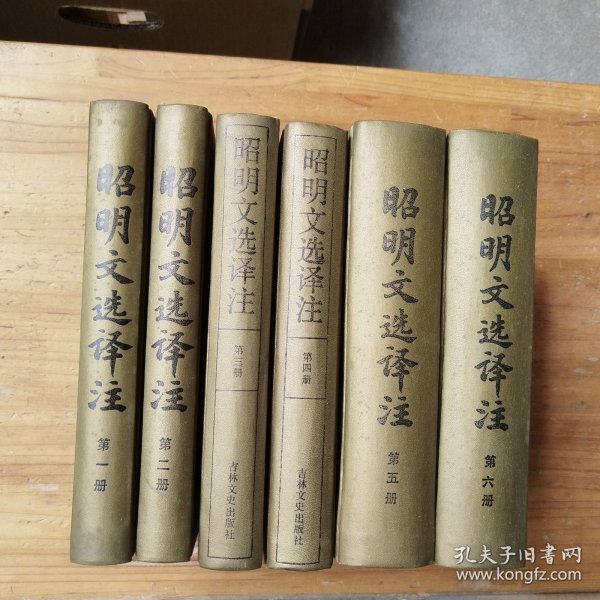 昭明文选译注
第一册
昭明文选译注
第二册
昭明文选译注
第三册
吉林文史出版社
昭明文选译注
第四册
吉林文史出版社
昭明文选译注
第五册
昭明文选译注
第六册
孔夫子旧书网
www.kongfz.com